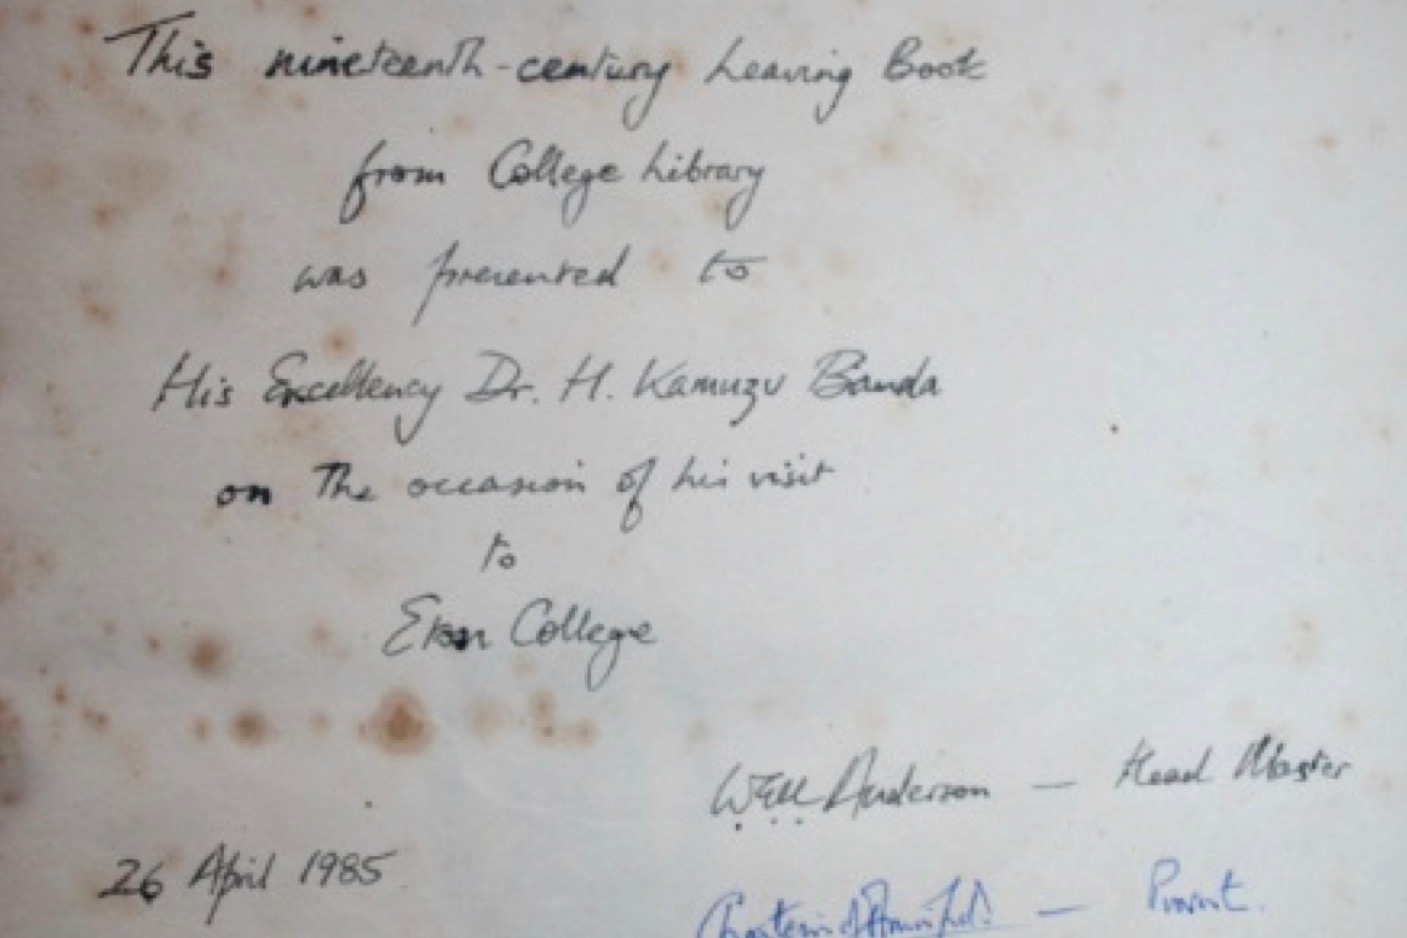 This nineteenth-century Leaving Book
from College Library
was presented to
His Excellency Dr. H. Kamuzu Banda
on the occasion of his visit
to
Eton College
W.E.K. Anderson — Head Master
26 April 1985.
Charteris of Amisfield — Provost.